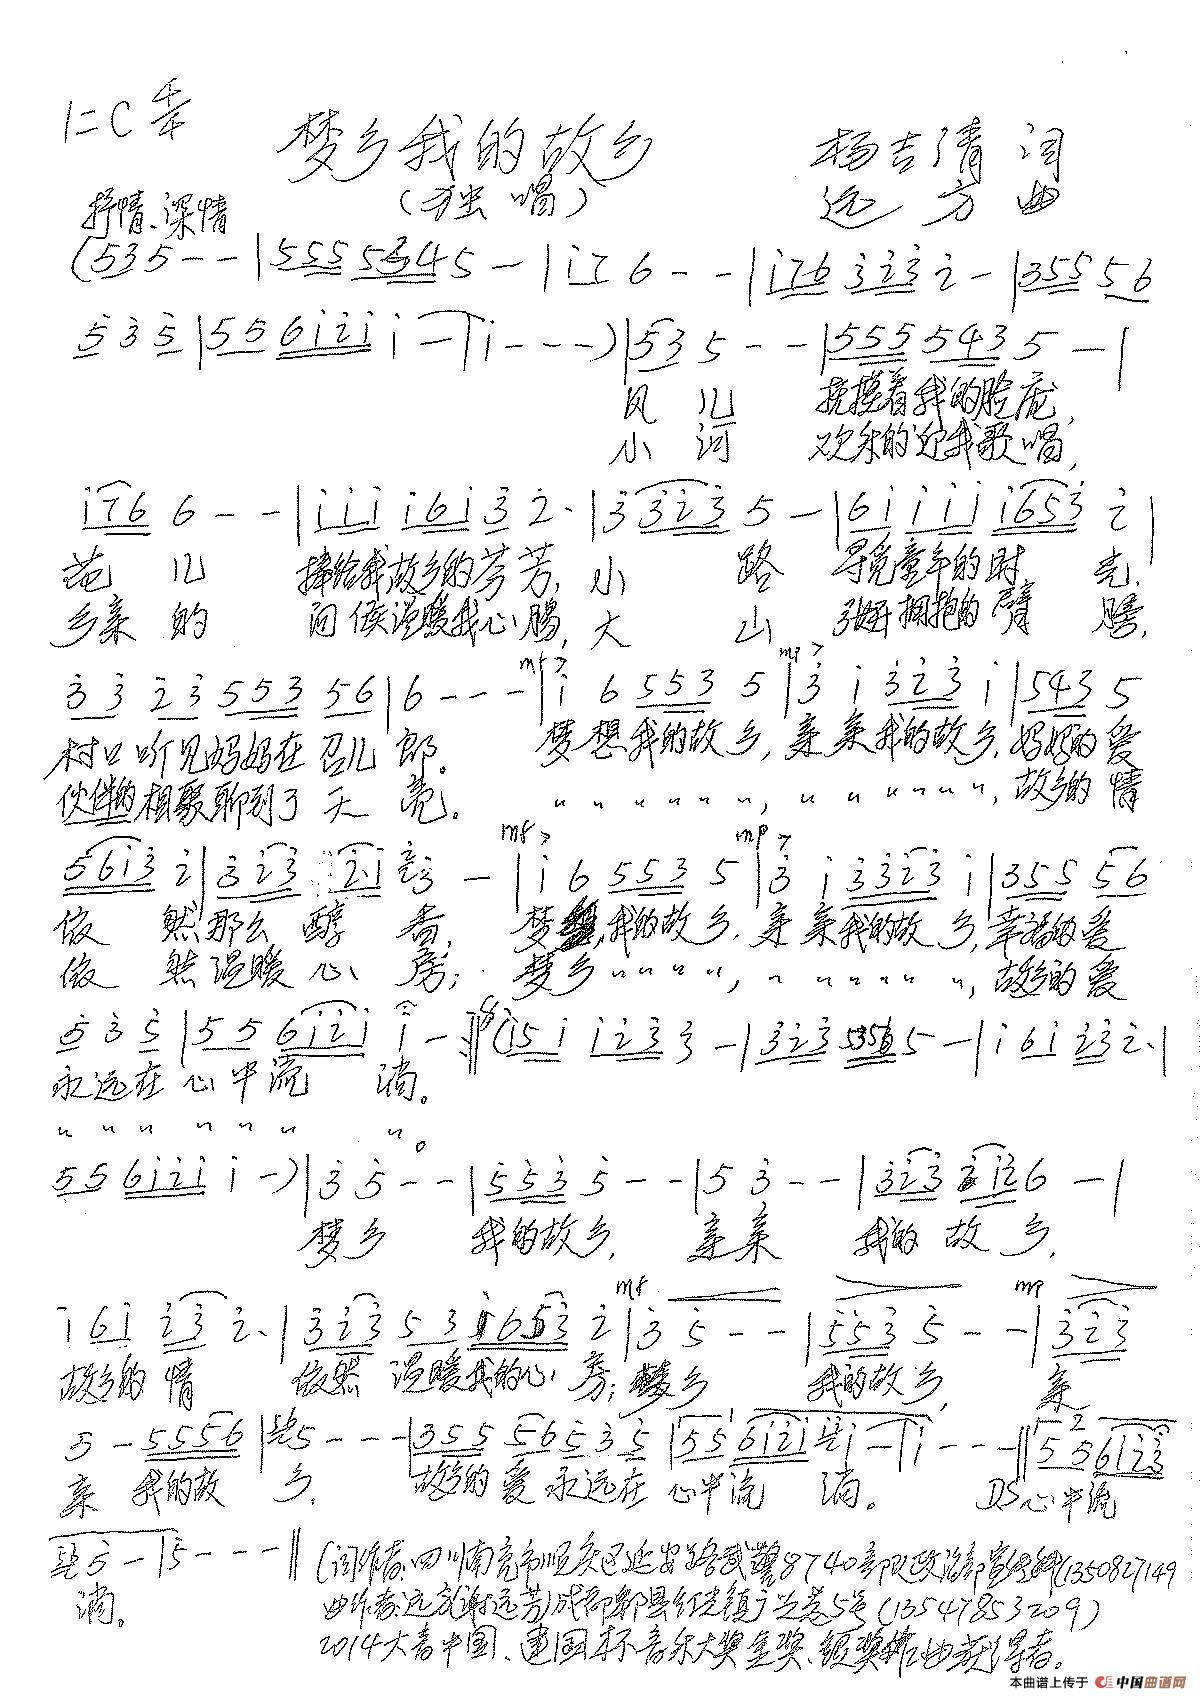 1=C 4/4
梦乡我的故乡
杨吉清 词
(独唱)
远方 曲
抒情、深情
(535--|555 5345-|i7 6--|i76 323 2-|355 56
5 3 5|55 6i2i i-|i---)|53 5--|555 543 5-|
风儿 抚摸着我的脸庞,
小河 欢乐的迎我歌唱,
i76 6--|iii i6i 3 2·|3 323 5-|6i ii i653 2|
花儿 捧给我故乡的芬芳,小路 寻觅童年的时光,
乡亲的 问候温暖我心肠,大山 张开拥抱的臂膀,
mf> mp>
3 3 2 3 553 56|6---|i 6 553 5|3 i 323 i|543 5
村口听见妈妈在召儿郎。 梦想我的故乡,亲亲我的故乡,妈妈的爱
伙伴的相聚聊到了天亮。 〃〃〃〃〃〃,〃〃〃〃〃〃,故乡的情
mf> mp>
56i3 2|3 23 2·i 3-|i 6 553 5|3 i 3323 i|355 56
依然那么醇香, 梦,我的故乡,亲亲我的故乡,幸福的爱
依然温暖心房; 梦乡〃〃〃〃,〃〃〃〃〃〃,故乡的爱
5 3 5|55 6i2i i-:‖(i5 i i23 3-|323 5356 5-|i 6i 23 2·|
永远在心中流淌。
〃〃〃〃〃〃 〃。
55 6i2i i-)|35--|553 5--|53--|323 3i2 6-|
梦乡 我的故乡, 亲亲 我的故乡,
mf mp
i 6i 23 2·|323 53 i653 2|35--|553 5--|323
故乡的情 依然温暖我的心房;梦乡 我的故乡, 亲
5-5556|5---|355 56 5 3 5|55 6i2i i-|i---‖55 6i23
亲 我的故乡, 故乡的爱永远在心中流淌。 D.S心中流
5-|5---‖
淌。
(词作者:四川南充市顺庆区延安路武警8740部队政治部宣传科(1350827149
曲作者:远方(谢远芳)成都郫县红光镇广兰巷5号(13547853209)
2014大音中国、建国杯音乐大奖金奖、银奖作曲获得者。
本曲谱上传于 中国曲谱网